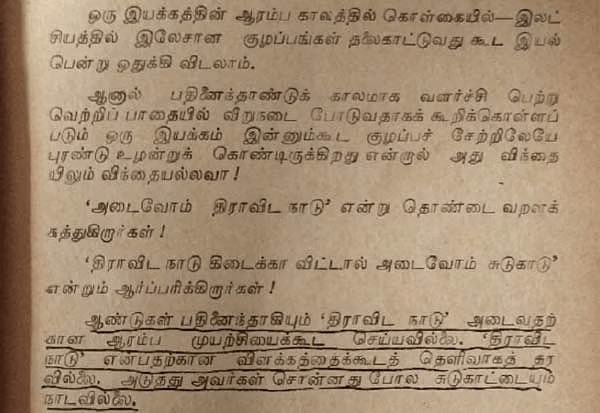 ஒரு இயக்கத்தின் ஆரம்ப காலத்தில் கொள்கையில்—இலட்
சியத்தில் இலேசான குழப்பங்கள் தலைகாட்டுவது கூட இயல்
பென்று ஒதுக்கி விடலாம்.
ஆனால் பதினைந்தாண்டுக் காலமாக வளர்ச்சி பெற்று
வெற்றிப் பாதையில் விறுநடை போடுவதாகக் கூறிக்கொள்ளப்
படும் ஒரு இயக்கம் இன்னும்கூட குழப்பச் சேற்றிலேயே
புரண்டு உழன்றுக் கொண்டிருக்கிறது என்றால் அது விந்தை
யிலும் விந்தையல்லவா !
‘அடைவோம் திராவிட நாடு’ என்று தொண்டை வறளக்
கத்துகிறார்கள் !
‘திராவிட நாடு கிடைக்கா விட்டால் அடைவோம் சுடுகாடு’
என்றும் ஆர்ப்பரிக்கிறார்கள் !
ஆண்டுகள் பதினைந்தாகியும் ‘திராவிட நாடு’ அடைவதற்
கான ஆரம்ப முயற்சியைக்கூட செய்யவில்லை. ‘திராவிட
நாடு’ என்பதற்கான விளக்கத்தைக்கூடத் தெளிவாகத் தர
வில்லை. அடுத்து அவர்கள் சொன்னது போல சுடுகாட்டையும்
நாடவில்லை.